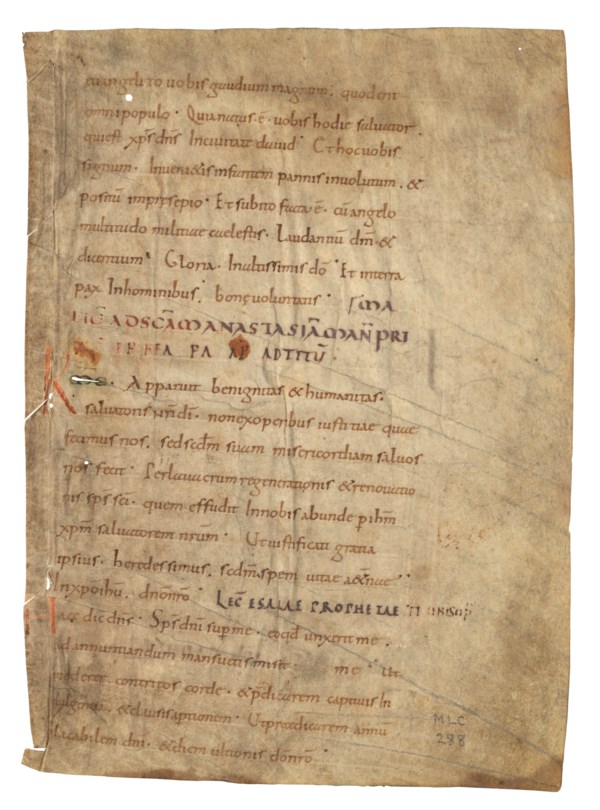 euangelizo uobis gaudium magnum. quod erit
omni populo. Quia natus ē. uobis hodie saluator.
qui est xp̄s dn̄s In ciuitate dauid. Et hoc uobis
signum. Inuenietis infantem pannis inuolutum. &
positū in presepio. Et subito facta ē. cū angelo
multitudo militiae caelestis. Laudantiū dm̄. &
dicentium. Gloria. In altissimis dō. Et in terra
pax In hominibus. bonę uoluntatis.
AD SCĀM ANASTASIĀ MAN PRI
AP AD TITŪ.
Apparuit benignitas & humanitas.
saluatoris non ex operibus iustitiae quae
fecimus nos. sed scdm̄ suam misericordiam saluos
nos fecit. Per lauacrum regenerationis & renouatio
nis sp̄s sc̄i. quem effudit In nobis abunde p ihm̄
xpm̄ saluatorem nrūm. Ut iustificati gratia
ipsius. heredes simus. scdm̄ spem uitae aeternae.
In xpo ihū. dno nrō. LEC ESAIAE PROPHETAE
dic dn̄s. Sps dn̄i sup me. eo qd unxerit me.
ad annuntiandum mansuetis misit me. Ut
mederer contritos corde. & p̄dicarem captiuis In
dulgentiā. & clausis aptionem. Ut praedicarem annū
placabilem dn̄i. & diem ultionis dō nrō.
MLC
288